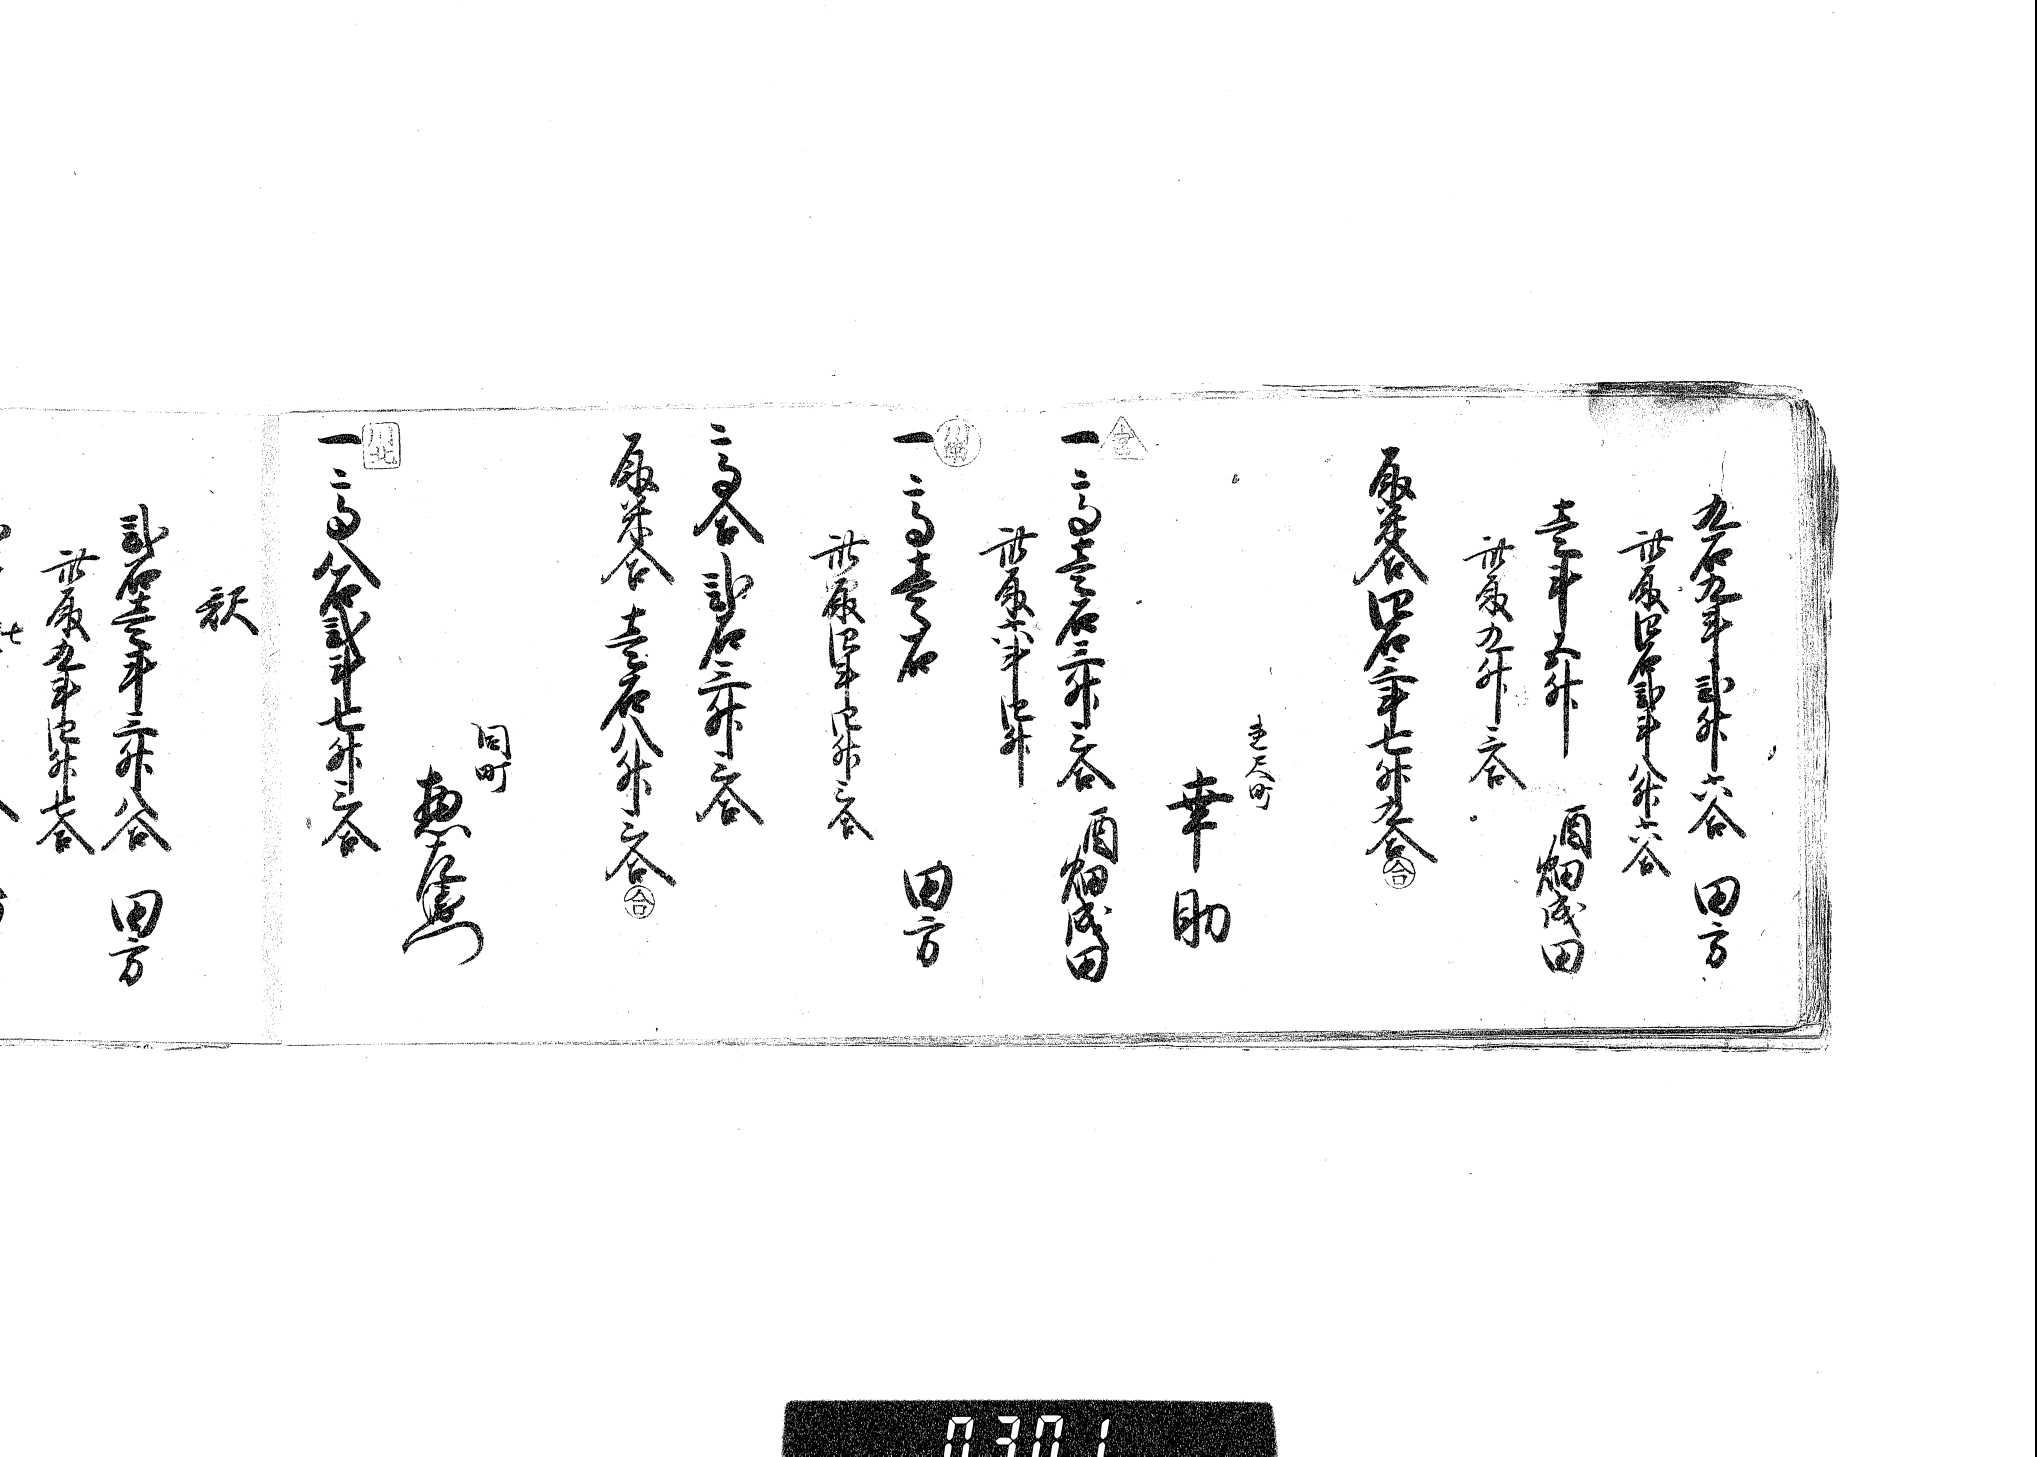 九石九斗弐升六合　田方
此取四石弐斗八升六合
壱斗五升　酉畑成田
此取九升三合
取米合四石三斗七升九合
合
幸助
一
高壱石三升三合　酉畑成田
此取六斗四升
一
川南
高壱石　田方
此取四斗四升三合
高合弐石三升三合
取米合　壱石八升三合
合
同町
惣左衛門
川北
一
高八石弐斗七升三合
訳
弐石壱斗三升八合　田方
此取九斗四升七合
0301